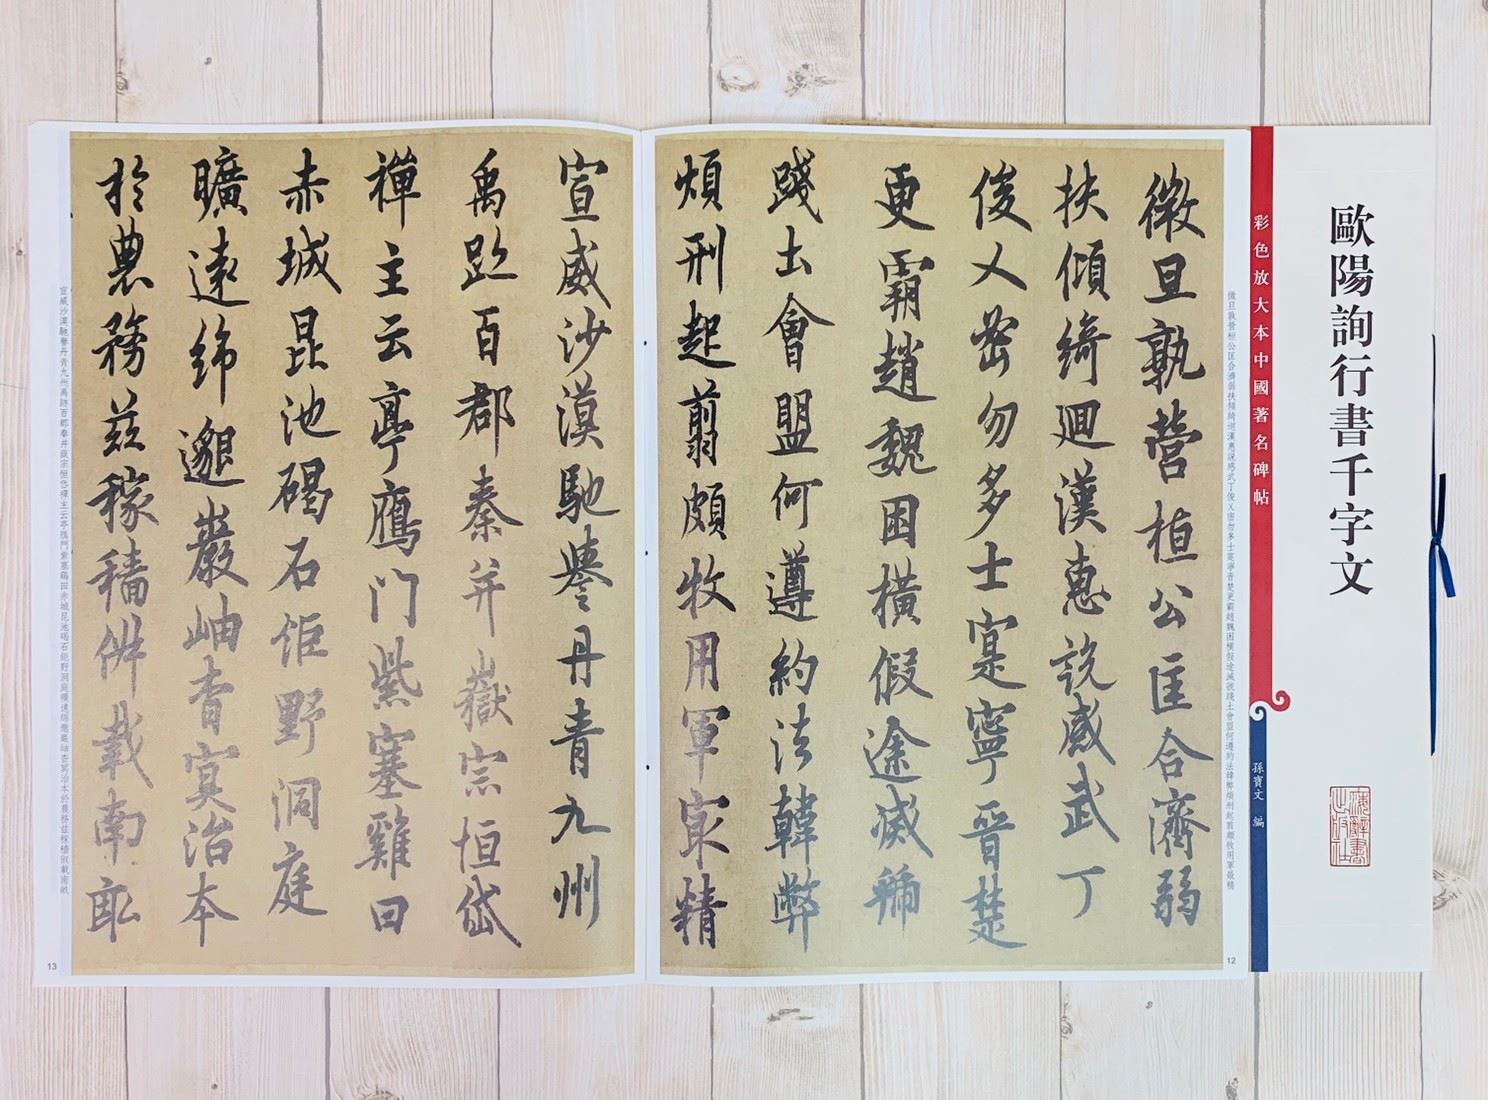 歐陽詢行書千字文
彩色放大本中國著名碑帖
孫寶文 編
微旦孰營桓公匡合濟弱扶傾綺迴漢惠說感武丁俊乂密勿多士寔寧晉楚更霸趙魏困橫假途滅虢踐土會盟何遵約法韓弊煩刑起翦頗牧用軍最精
微旦孰營桓公匡合濟弱
扶傾綺迴漢惠説感武丁
俊乂密勿多士寔寧晉楚
更霸趙魏困橫假途滅虢
踐土會盟何遵約法韓弊
煩刑起翦頗牧用軍最精
12
宣威沙漠馳譽丹青九州
禹跡百郡秦并嶽宗恒岱
禪主云亭鴈門紫塞雞田
赤城昆池碣石鉅野洞庭
曠遠綿邈巖岫杳冥治本
於農務茲稼穡俶載南畝
宣威沙漠馳譽丹青九州禹跡百郡秦并嶽宗恒岱禪主云亭鴈門紫塞雞田赤城昆池碣石鉅野洞庭曠遠綿邈巖岫杳冥治本於農務茲稼穡俶載南畝
13